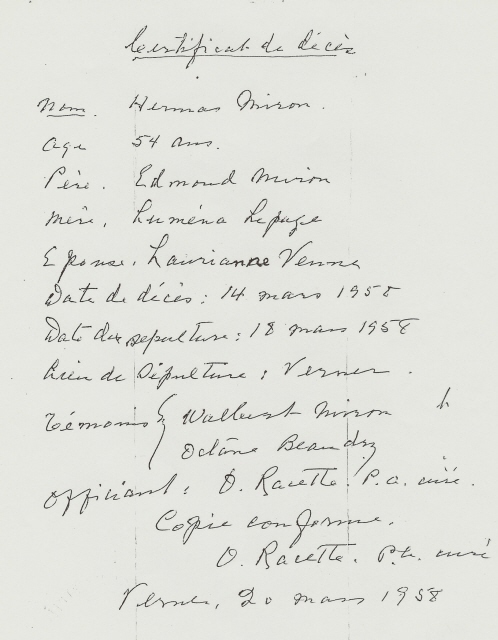 Certificat de décès
Nom. Hermas Miron.
Age 54 ans.
Père. Edmond Miron
Mère. Luména Lepage
Epouse. Laurianne Venne
Date de décès : 14 mars 1958
Date du sepulture : 18 mars 1958
Lieu de Sépulture : Verner.
Témoins { Miron
Octave Beaudry
Officiant : O. Racette. P.a. curé.
Copie conforme.
O. Racette. P.a. curé
Verner, 20 mars 1958